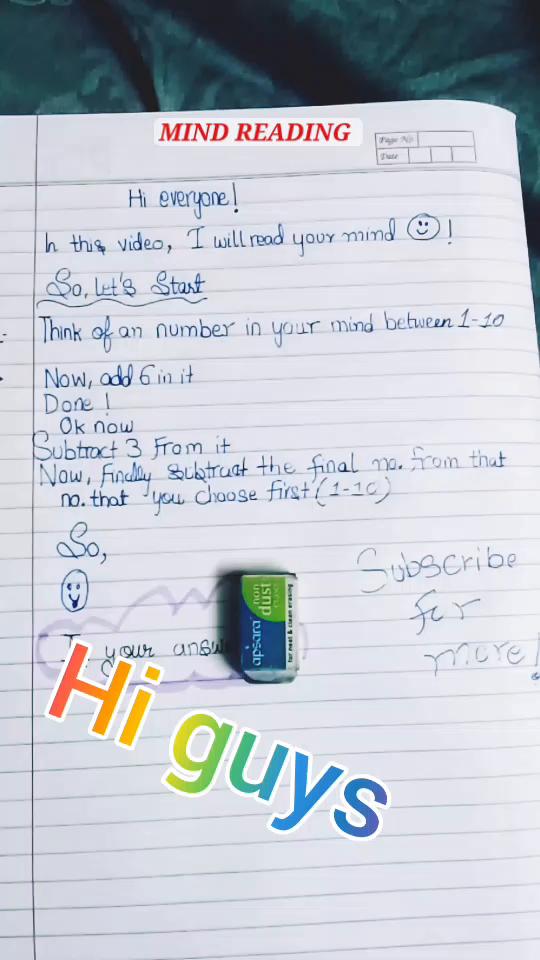 MIND READING
Page No.
Date
Hi everyone!
In this video, I will read your mind !
So, let's Start
Think of an number in your mind between 1-10
Now, add 6 in it
Done !
Ok now
Subtract 3 From it
Now, Finally subtruct the final no. from that
no. that you choose first (1-10)
So,
Subscribe
for
more!
your answ
apsara
non
dust
for neat & clean erasing
Hi guys